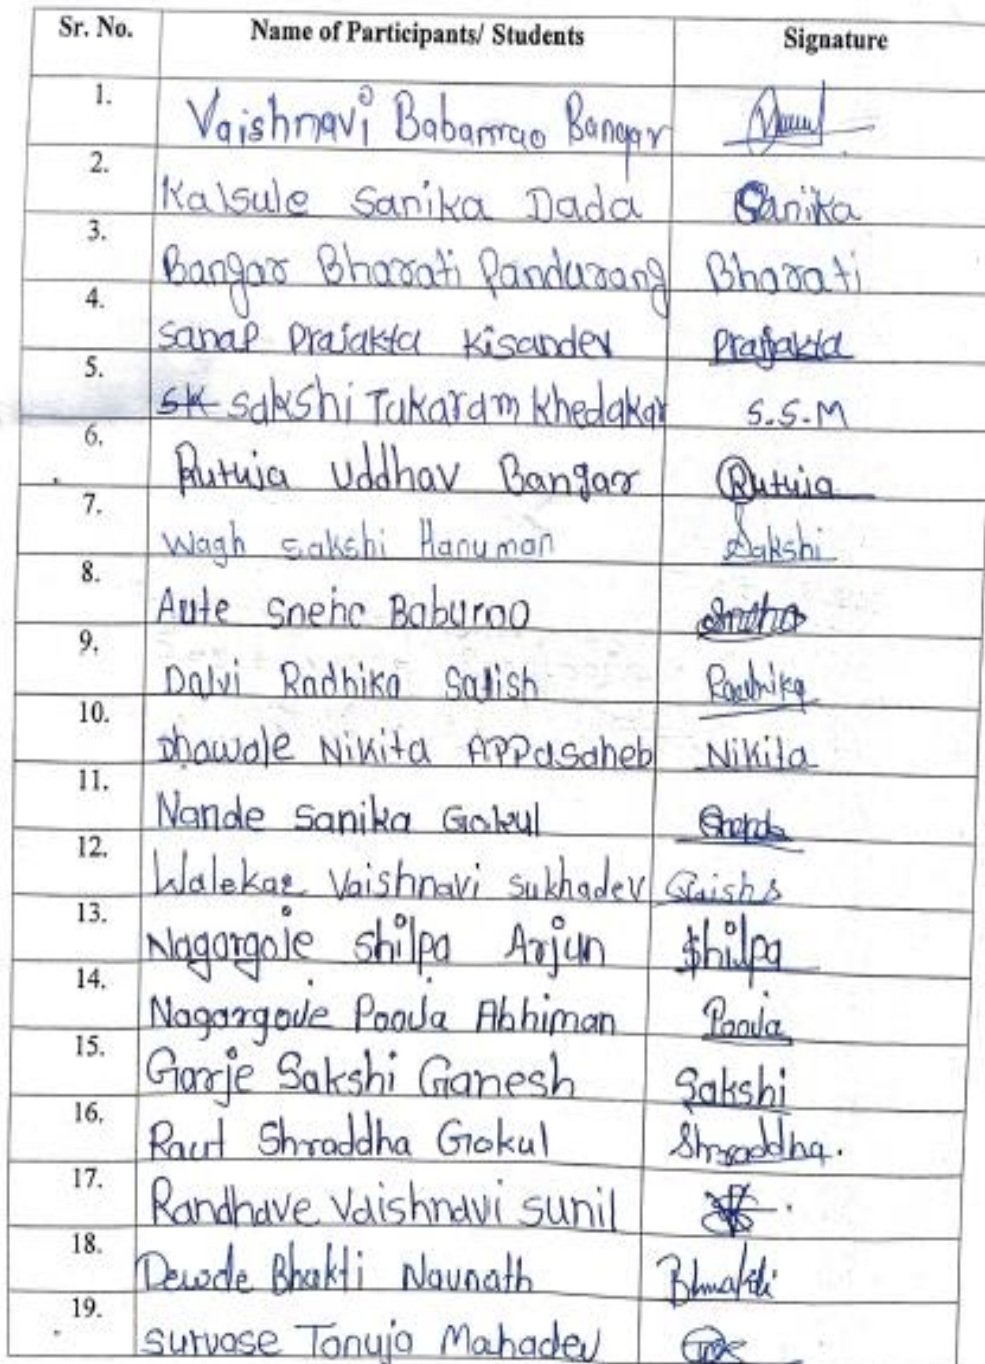 Sr. No. Name of Participants/ Students Signature
1. Vaishnavi Babanrao Bangar
2. Kalsule Sanika Dada Sanika
3. Bangar Bharati Pandurang Bharati
4. Sanap Prajakta Kisandev Prajakta
5. SK Sakshi Tukaram Khedakar S.S.M
6. Rutuja Uddhav Bangar Rutuja
7. Wagh Sakshi Hanuman Sakshi
8. Aute Sneha Baburao Sneha
9. Dalvi Radhika Satish Radhika
10. Dhawale Nikita Appasaheb Nikita
11. Nande Sanika Gokul
12. Walekar Vaishnavi Sukhadev
13. Nagargoje Shilpa Arjun Shilpa
14. Nagargoje Pooja Abhiman Pooja
15. Garje Sakshi Ganesh Sakshi
16. Raut Shraddha Gokul Shraddha.
17. Randhave Vaishnavi Sunil
18. Dewde Bhakti Navnath Bhakti
19. Survase Tanuja Mahadev